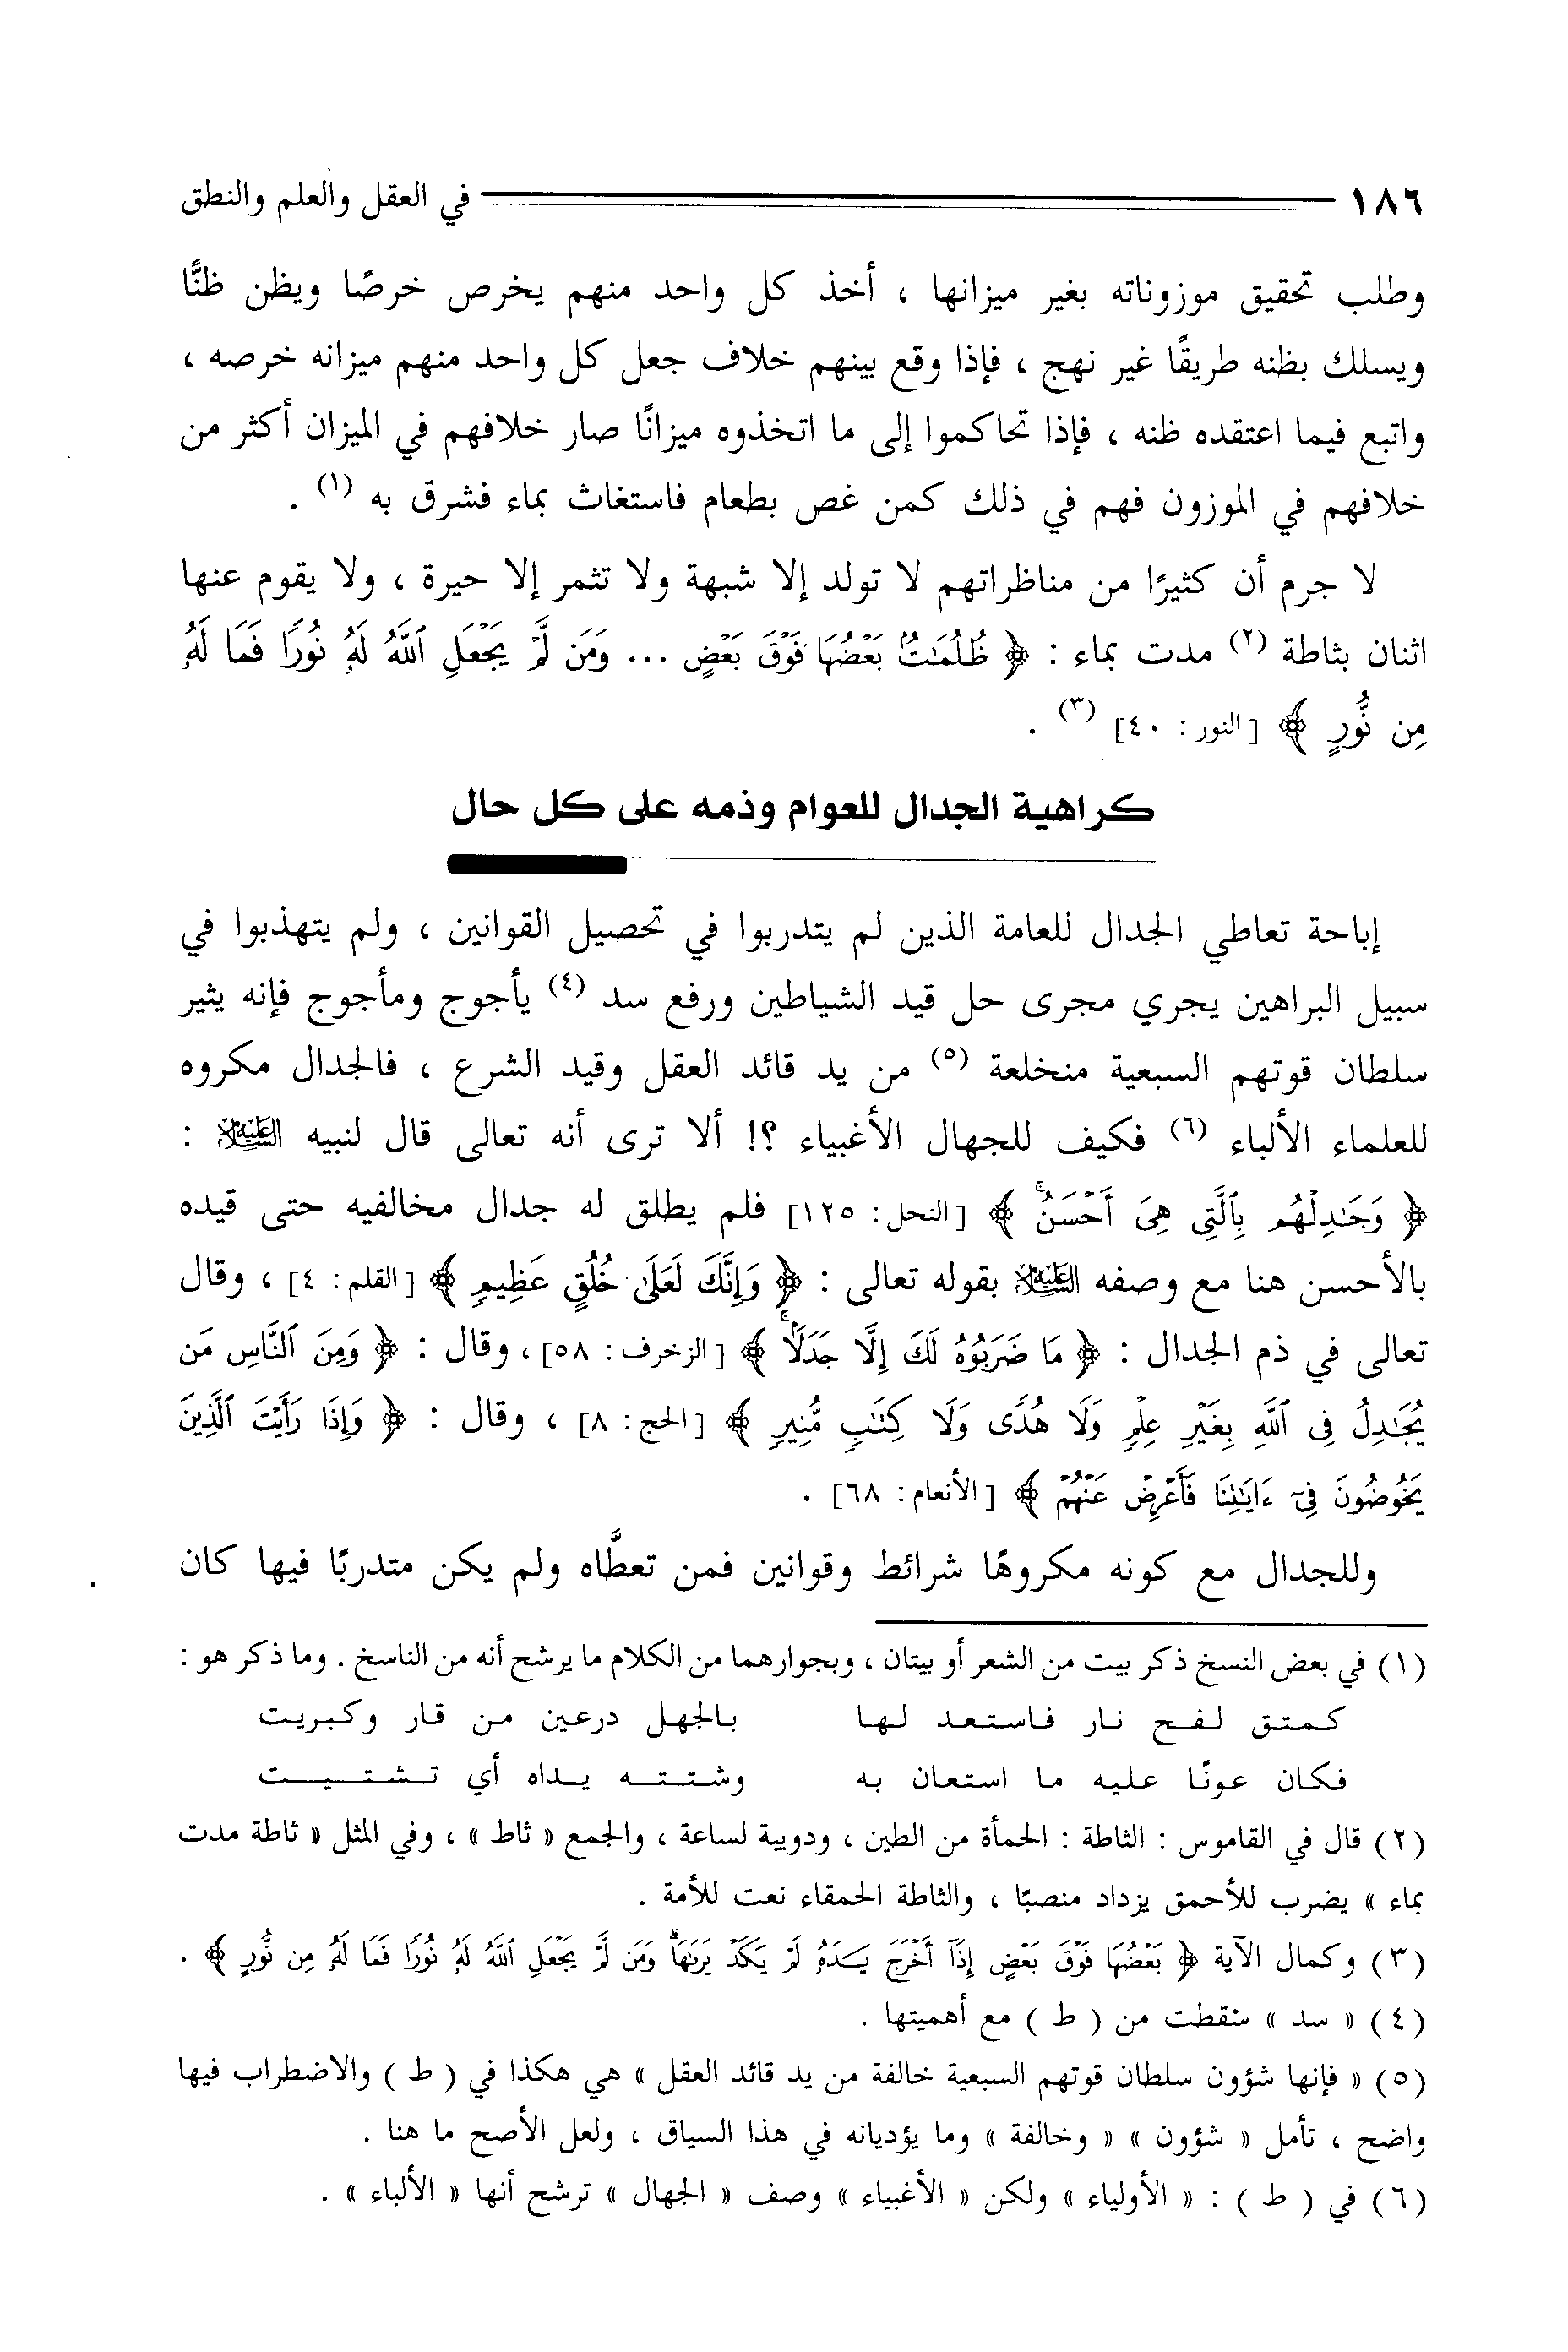 ١٨٦ في العقل والعلم والنطق
وطلب تحقيق موزوناته بغير ميزانها ، أخذ كل واحد منهم يخرص خرصًا ويظن ظنًّا
ويسلك بظنه طريقًا غير نهج ، فإذا وقع بينهم خلاف جعل كل واحد منهم ميزانه خرصه ،
واتبع فيما اعتقده ظنه ، فإذا تحاكموا إلى ما اتخذوه ميزانًا صار خلافهم في الميزان أكثر من
خلافهم في الموزون فهم في ذلك كمن غص بطعام فاستغاث بماء فشرق به (١) .
لا جرم أن كثيرًا من مناظراتهم لا تولد إلا شبهة ولا تثمر إلا حيرة ، ولا يقوم عنها
اثنان بثاطة (٢) مدت بماء : ﴿ ظُلُمَٰتٌۢ بَعْضُهَا فَوْقَ بَعْضٍ ... وَمَن لَّمْ يَجْعَلِ ٱللَّهُ لَهُۥ نُورًا فَمَا لَهُۥ
مِن نُّورٍ ﴾ [النور : ٤٠] (٣) .
كراهية الجدال للعوام وذمه على كل حال
إباحة تعاطي الجدال للعامة الذين لم يتدربوا في تحصيل القوانين ، ولم يتهذبوا في
سبيل البراهين يجري مجرى حل قيد الشياطين ورفع سد (٤) يأجوج ومأجوج فإنه يثير
سلطان قوتهم السبعية منخلعة (٥) من يد قائد العقل وقيد الشرع ، فالجدال مكروه
للعلماء الألباء (٦) فكيف للجهال الأغبياء ؟! ألا ترى أنه تعالى قال لنبيه عليه السلام :
﴿ وَجَٰدِلْهُم بِٱلَّتِى هِىَ أَحْسَنُۚ ﴾ [النحل : ١٢٥] فلم يطلق له جدال مخالفيه حتى قيده
بالأحسن هنا مع وصفه عليه السلام بقوله تعالى : ﴿ وَإِنَّكَ لَعَلَىٰ خُلُقٍ عَظِيمٍ ﴾ [القلم : ٤] ، وقال
تعالى في ذم الجدال : ﴿ مَا ضَرَبُوهُ لَكَ إِلَّا جَدَلًۢاۚ ﴾ [الزخرف : ٥٨] ، وقال : ﴿ وَمِنَ ٱلنَّاسِ مَن
يُجَٰدِلُ فِى ٱللَّهِ بِغَيْرِ عِلْمٍ وَلَا هُدًى وَلَا كِتَٰبٍ مُّنِيرٍ ﴾ [الحج : ٨] ، وقال : ﴿ وَإِذَا رَأَيْتَ ٱلَّذِينَ
يَخُوضُونَ فِىٓ ءَايَٰتِنَا فَأَعْرِضْ عَنْهُمْ ﴾ [الأنعام : ٦٨] .
وللجدال مع كونه مكروهًا شرائط وقوانين فمن تعطَّاه ولم يكن متدربًا فيها كان
(١) في بعض النسخ ذكر بيت من الشعر أو بيتان ، وبجوارهما من الكلام ما يرشح أنه من الناسخ . وما ذكر هو :
كمتق لفح نار فاستعد لها بالجهل درعين من قار وكبريت
فكان عونًا عليه ما استعان به وشتته يداه أي تشتيت
(٢) قال في القاموس : الثاطة : الحمأة من الطين ، ودويبة لساعة ، والجمع « ثاط » ، وفي المثل « ثاطة مدت
بماء » يضرب للأحمق يزداد منصبًا ، والثاطة الحمقاء نعت للأمة .
(٣) وكمال الآية ﴿ بَعْضُهَا فَوْقَ بَعْضٍ إِذَآ أَخْرَجَ يَدَهُۥ لَمْ يَكَدْ يَرَىٰهَاۗ وَمَن لَّمْ يَجْعَلِ ٱللَّهُ لَهُۥ نُورًا فَمَا لَهُۥ مِن نُّورٍ ﴾ .
(٤) « سد » سقطت من ( ط ) مع أهميتها .
(٥) « فإنها شؤون سلطان قوتهم السبعية خالفة من يد قائد العقل » هي هكذا في ( ط ) والاضطراب فيها
واضح ، تأمل « شؤون » « وخالفة » وما يؤديانه في هذا السياق ، ولعل الأصح ما هنا .
(٦) في ( ط ) : « الأولياء » ولكن « الأغبياء » وصف « الجهال » ترشح أنها « الألباء » .